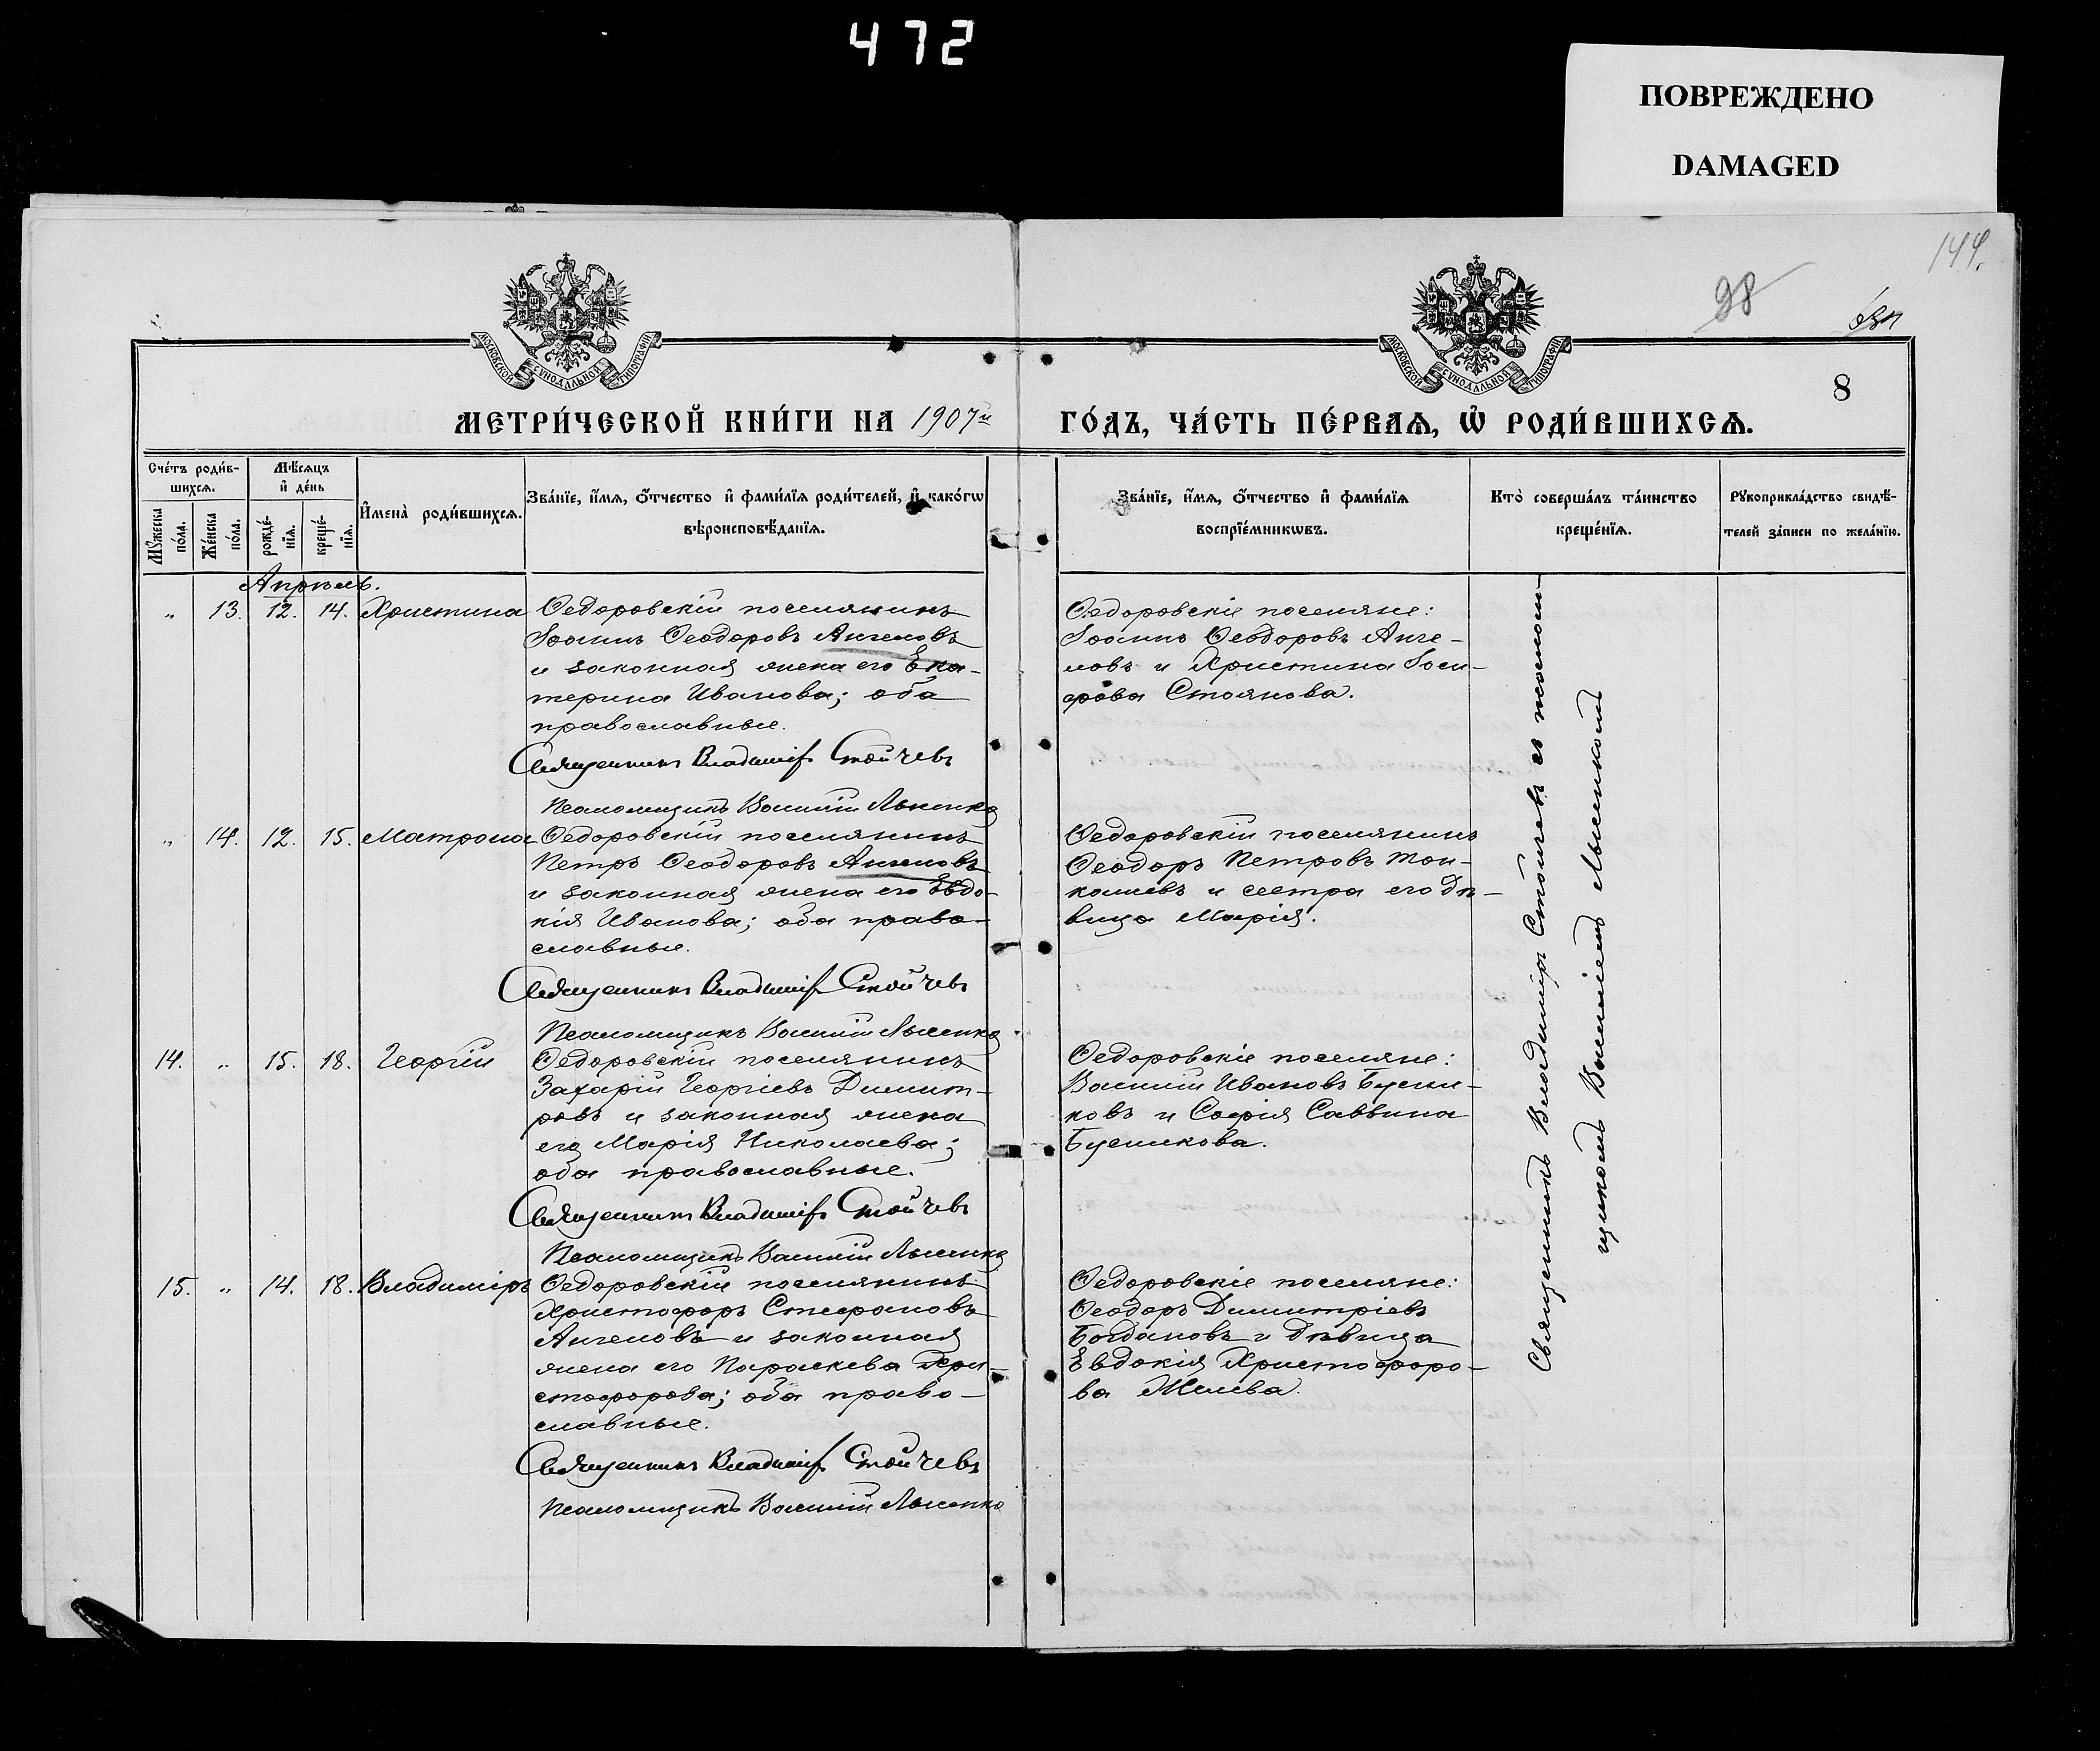 472
ПОВРЕЖДЕНО
DAMAGED
144.
98
МОСКОВСКОЙ СѴНОДАЛЬНОЙ ТИПОГРАФІИ
МОСКОВСКОЙ СѴНОДАЛЬНОЙ ТИПОГРАФІИ
8
МЕТРИ́ЧЕСКОЙ КНИ́ГИ НА 1907й ГО́ДЪ, ЧА́СТЬ ПЕ́РВАѦ, Ѡ҆ РОДИ́ВШИХСѦ.
Сче́тъ роди́в-
шихсѧ.
Мꙋ́жеска по́ла.
Же́нска по́ла.
Мѣ́сѧцъ
и҆ де́нь
рожде́-
нїѧ.
креще́-
нїѧ.
И҆мена̀ роди́вшихсѧ.
Зва́нїе, и҆́мѧ, ѻ҆́тчество и҆ фами́лїѧ роди́телей, и҆ како́гѡ
вѣроисповѣ́данїѧ.
Зва́нїе, и҆́мѧ, ѻ҆́тчество и҆ фами́лїѧ
воспрїе́мникѡвъ.
Кто̀ соверша́лъ та́инство
креще́нїѧ.
Рꙋкоприкла́дство свидѣ́-
телей за́писи по жела́нїю.
Апрѣль.
„ 13. 12. 14. Христина
Ѳедоровскій поселянинъ
Іоаннъ Ѳеодоровъ Ангеловъ
и законная жена его Ека-
терина Иванова; оба
православные.
Священникъ Владиміръ Стойчевъ
Псаломщикъ Василій Лысенко
Ѳедоровскіе поселяне:
Іоаннъ Ѳеодоровъ Анге-
ловъ и Христина Іоси-
фова Стоянова.
„ 14. 12. 15. Матрона
Ѳедоровскій поселянинъ
Петръ Ѳеодоровъ Ангеловъ
и законная жена его Евдо-
кія Иванова; оба право-
славные.
Священникъ Владиміръ Стойчевъ
Псаломщикъ Василій Лысенко
Ѳедоровскій поселянинъ
Ѳеодоръ Петровъ Мои-
и сестра его дѣ-
вица Марія.
14. „ 15. 18. Георгій
Ѳедоровскій поселянинъ
Захарій Георгіевъ Димит-
ровъ и законная жена
его Марія Николаева;
оба православные.
Священникъ Владиміръ Стойчевъ
Псаломщикъ Василій Лысенко
Ѳедоровскіе поселяне:
Василій Ивановъ Бусни-
ковъ и Софія Саввина
Бусникова.
15. „ 14. 18. Владиміръ
Ѳедоровскій поселянинъ
Христофоръ Стефановъ
Ангеловъ и законная
жена его Параскева Хри-
стофорова; оба право-
славные.
Священникъ Владиміръ Стойчевъ
Псаломщикъ Василій Лысенко
Ѳедоровскіе поселяне:
Ѳеодоръ Димитріевъ
Богдановъ и дѣвица
Евдокія Христофоро-
ва Желева.
Священникъ Владиміръ Стойчевъ съ псалом-
щикомъ Василіемъ Лысенкомъ